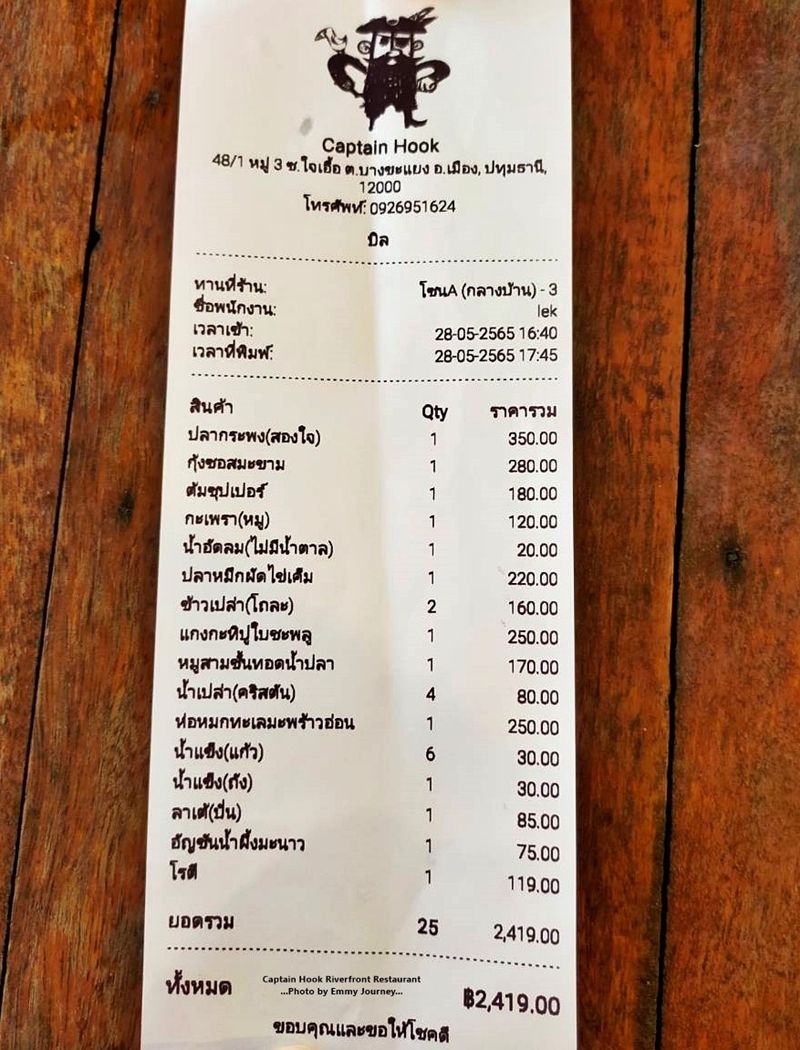 Captain Hook
48/1 หมู่ 3 ซ.ใจเอื้อ ต.บางขะแยง อ.เมือง, ปทุมธานี,
12000
โทรศัพท์: 0926951624
บิล
ทานที่ร้าน: โซนA (กลางบ้าน) - 3
ชื่อพนักงาน: lek
เวลาเข้า: 28-05-2565 16:40
เวลาที่พิมพ์: 28-05-2565 17:45
สินค้า Qty ราคารวม
ปลากระพง(สองใจ) 1 350.00
กุ้งซอสมะขาม 1 280.00
ต้มซุปเปอร์ 1 180.00
กะเพรา(หมู) 1 120.00
น้ำอัดลม(ไม่มีน้ำตาล) 1 20.00
ปลาหมึกผัดไข่เค็ม 1 220.00
ข้าวเปล่า(โถละ) 2 160.00
แกงกะทิปูใบชะพลู 1 250.00
หมูสามชั้นทอดน้ำปลา 1 170.00
น้ำเปล่า(คริสตัน) 4 80.00
ห่อหมกทะเลมะพร้าวอ่อน 1 250.00
น้ำแข็ง(แก้ว) 6 30.00
น้ำแข็ง(ถัง) 1 30.00
ลาเต้(ปั่น) 1 85.00
อัญชันน้ำผึ้งมะนาว 1 75.00
โรตี 1 119.00
ยอดรวม 25 2,419.00
ทั้งหมด ฿2,419.00
Captain Hook Riverfront Restaurant
...Photo by Emmy Journey...
ขอบคุณและขอให้โชคดี